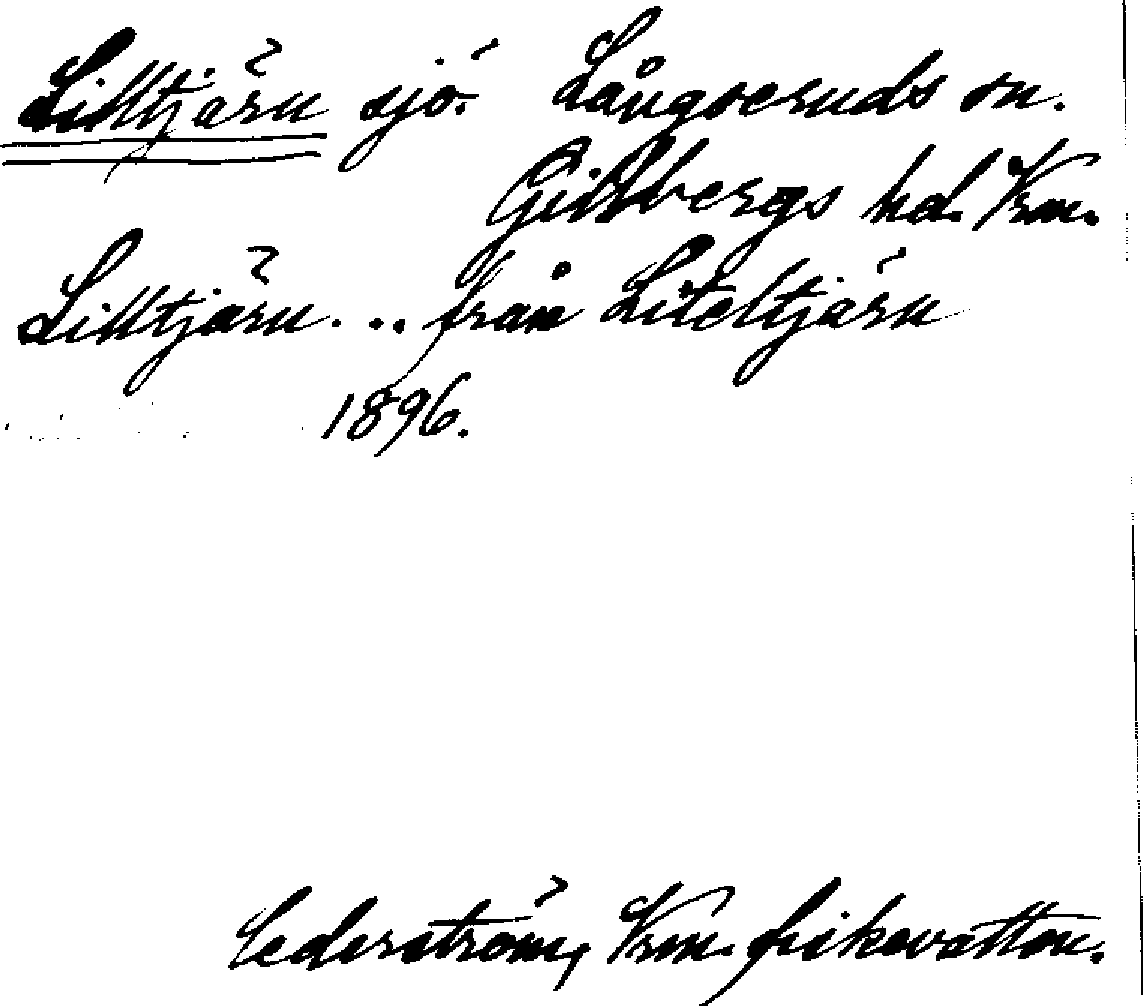 Lilltjärn sjö. Långseruds sn.
Gillbergs hd. Vrm.
Lilltjärn ... från Liteltjärn
1896.
Cederström, Vrm. fiskevatten.